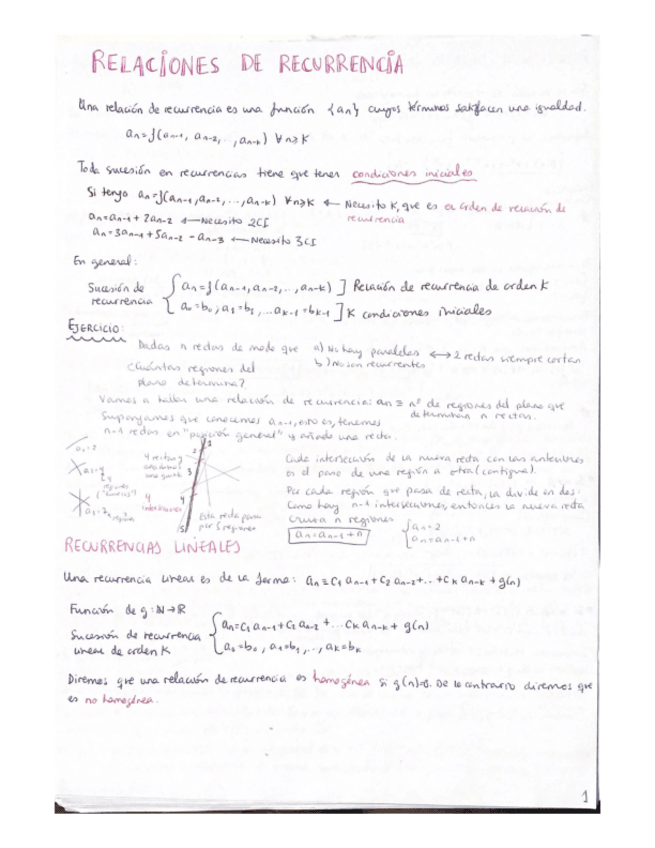 RELACIONES DE RECURRENCIA
Una relación de recurrencia es una función {an} cuyos términos satisfacen una igualdad.
an=f(an-1, an-2,..,an-k) ∀n≥K
Toda sucesión en recurrencias tiene que tener condiciones iniciales
Si tengo an=f(an-1,an-2,...,an-k) ∀n≥K ← Necesito K, que es el orden de relación de recurrencia
an=an-1+2an-2 ← Necesito 2CI
an=3an-1+5an-2-an-3 ← Necesito 3CI
En general:
Sucesión de recurrencia { an=f(an-1,an-2,..,an-k) ] Relación de recurrencia de orden K
a0=b0, a1=b1, ...ak-1=bk-1 ] K condiciones iniciales
EJERCICIO:
Dadas n rectas de modo que a) No hay paralelas ↔ 2 rectas siempre cortan
b) No son recurrentes
¿Cuántas regiones del
plano determina?
Vamos a hallar una relación de recurrencia: an ≡ nº de regiones del plano que determinan n rectas.
Supongamos que conocemos an-1, esto es, tenemos
n-1 rectas en "posición general" y añado una recta.
4 rectas y
4 intersecciones
Esta recta pasa
por 5 regiones
Cada intersección de la nueva recta con las anteriores
es el paso de una región a otra (contigua).
Por cada región que pasa de recta, la divide en dos:
Como hay n-1 intersecciones, entonces la nueva recta
cruza n regiones
an=an-1+n
an=an-1+n
RECURRENCIAS LINEALES
Una recurrencia lineal es de la forma: an=c1an-1+c2an-2+..+ckan-k+g(n)
Función de g:ℕ→ℝ
Sucesión de recurrencia
lineal de orden K
{ an=c1an-1+c2an-2+...ckan-k+g(n)
a0=b0, a1=b1,.., ak=bk
Diremos que una relación de recurrencia es homogénea si g(n)=0. De lo contrario diremos que
es no homogénea.
1